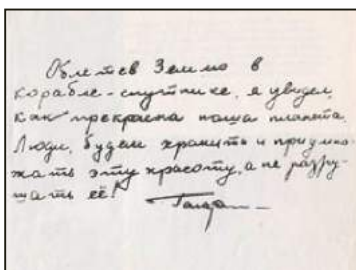 Облетев Землю в
корабле-спутнике, я увидел,
как прекрасна наша планета.
Люди, будем хранить и приумно-
жать эту красоту, а не разру-
шать её!
Гагарин